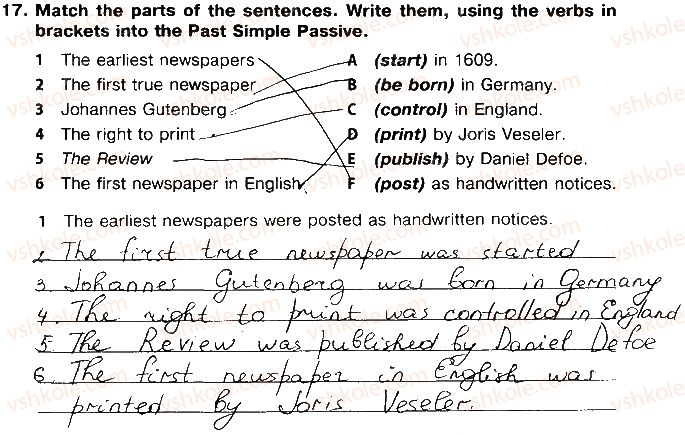 17. Match the parts of the sentences. Write them, using the verbs in
brackets into the Past Simple Passive.
1 The earliest newspapers A (start) in 1609.
2 The first true newspaper B (be born) in Germany.
3 Johannes Gutenberg C (control) in England.
4 The right to print D (print) by Joris Veseler.
5 The Review E (publish) by Daniel Defoe.
6 The first newspaper in English F (post) as handwritten notices.
1 The earliest newspapers were posted as handwritten notices.
2. The first true newspaper was started
3. Johannes Gutenberg was born in Germany
4. The right to print was controlled in England
5. The Review was published by Daniel Defoe
6. The first newspaper in English was
printed by Joris Veseler.
vshkole.com